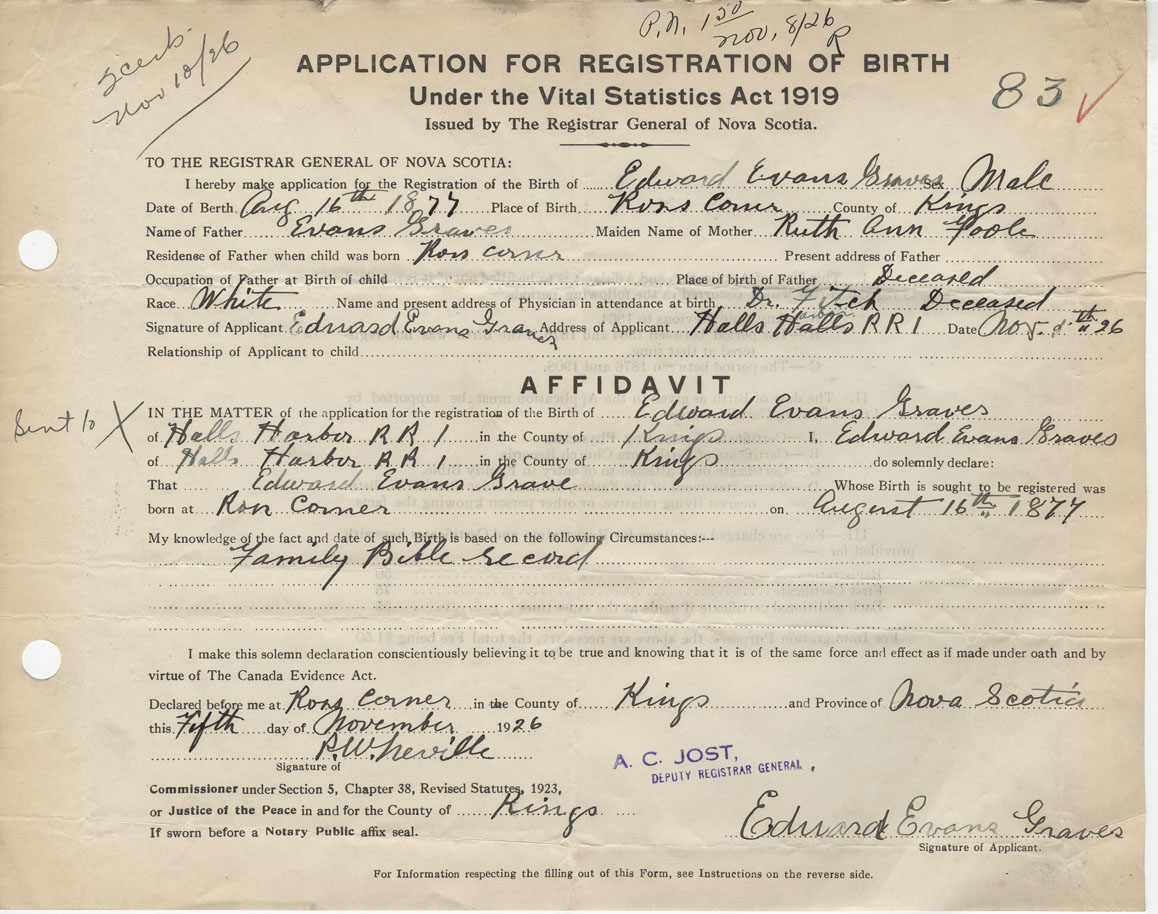 P.N. 1 50
Nov. 8/26
R
2 certs.
Nov 10/26
APPLICATION FOR REGISTRATION OF BIRTH
Under the Vital Statistics Act 1919
Issued by The Registrar General of Nova Scotia.
83 ✓
TO THE REGISTRAR GENERAL OF NOVA SCOTIA:
I hereby make application for the Registration of the Birth of Edward Evans Graves Sex Male
Date of Berth Aug 16th 1877 Place of Birth Ross Corner County of Kings
Name of Father Evans Graves Maiden Name of Mother Ruth Ann Poole
Residense of Father when child was born Ross corner Present address of Father
Occupation of Father at Birth of child Place of birth of Father Deceased
Race White Name and present address of Physician in attendance at birth Dr. Fitch Deceased
Signature of Applicant Edward Evans Graves Address of Applicant Halls Halls RR 1 Date Nov. 5th 26
Relationship of Applicant to child
AFFIDAVIT
Sent to X
IN THE MATTER of the application for the registration of the Birth of Edward Evans Graves
of Halls Harbor RR 1 in the County of Kings I, Edward Evans Graves
of Halls Harbor RR 1 in the County of Kings do solemnly declare:
That Edward Evans Grave Whose Birth is sought to be registered was
born at Ross Corner on August 16th 1877
My knowledge of the fact and date of such Birth is based on the following Circumstances:--
Family Bible record
I make this solemn declaration conscientiously believing it to be true and knowing that it is of the same force and effect as if made under oath and by
virtue of The Canada Evidence Act.
Declared before me at Ross Corner in the County of Kings and Province of Nova Scotia
this Fifth day of November 1926
P.W. Neville
Signature of
A. C. JOST,
DEPUTY REGISTRAR GENERAL.
Commissioner under Section 5, Chapter 38, Revised Statutes, 1923,
or Justice of the Peace in and for the County of Kings
If sworn before a Notary Public affix seal.
Edward Evans Graves
Signature of Applicant.
For Information respecting the filling out of this Form, see Instructions on the reverse side.